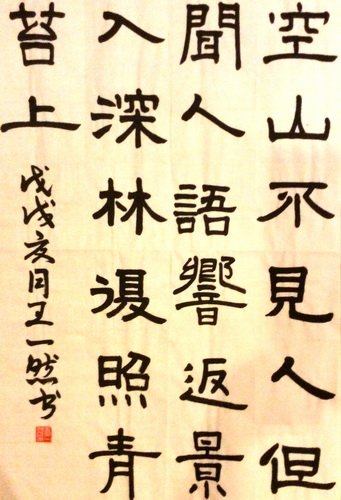 空山不見人但
聞人語響返景
入深林復照青
苔上
戊戌亥月王一然书